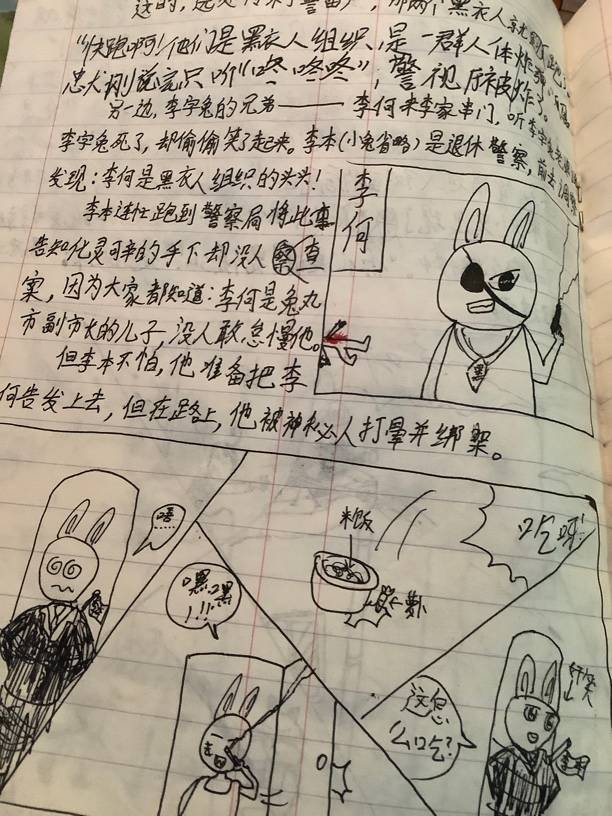 这的,
那两个黑衣人就
"快跑啊!他们是黑衣人组织,是一群人体炸弹"
忠犬刚说完只听"咚咚咚",警视厅被炸了。
另一边,李字兔的兄弟——李何来李家串门,听李字兔
李字兔死了,却偷偷笑了起来。李本(小兔省略)是退休警察,前去
发现:李何是黑衣人组织的头头!
李本连忙跑到警察局将此事
告知化灵可辛的手下却没人查
案,因为大家都知道:李何是兔丸
市副市长的儿子,没人敢怠慢他。
但李本不怕,他准备把李
何告发上去,但在路上,他被神秘人打晕并绑架。
李何
黑
唔……
嘿嘿!!!
米饭
萝卜
吃呀!
这怎么吃?